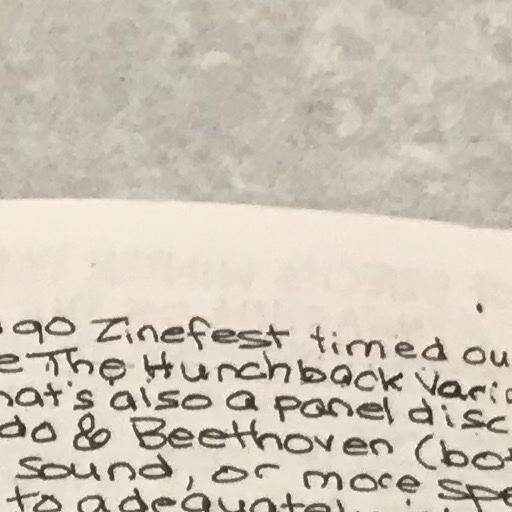 go Zinefest timed ou
e The Hunchback Vari
hat's also a panel disc
do & Beethoven (bo
sound, or more spe
to adequatel